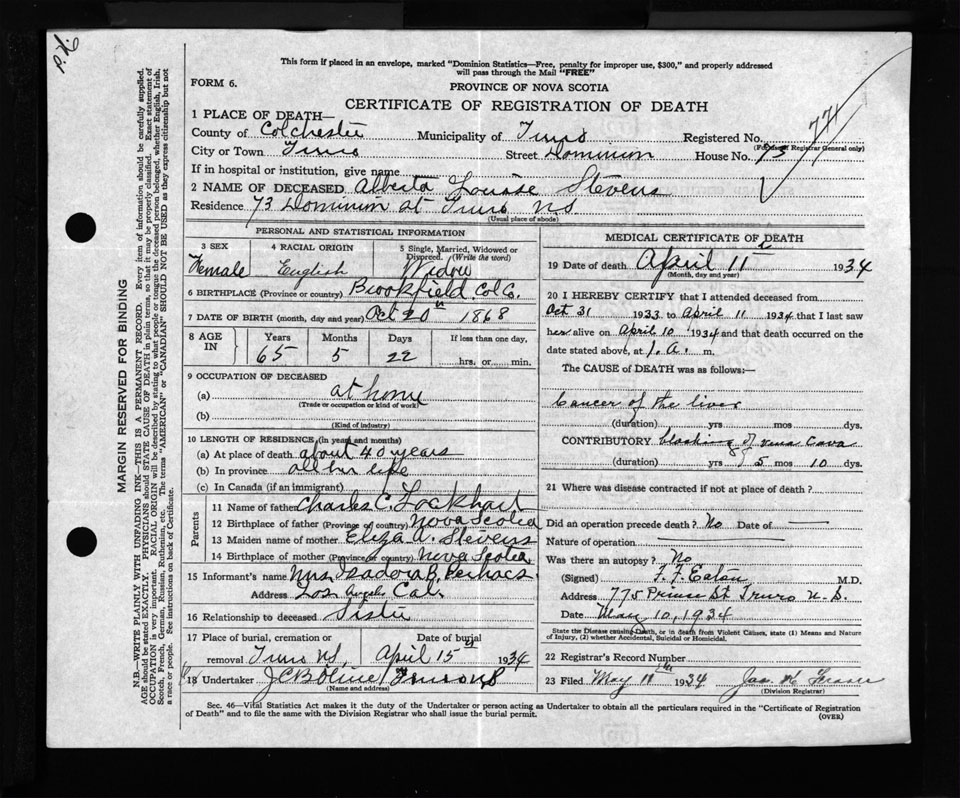 This form if placed in an envelope, marked "Dominion Statistics—Free, penalty for improper use, $300," and properly addressed
will pass through the Mail "FREE"
FORM 6.
PROVINCE OF NOVA SCOTIA
CERTIFICATE OF REGISTRATION OF DEATH
1 PLACE OF DEATH—
County of Colchester Municipality of Truro Registered No. 774
(For use of Registrar General only)
City or Town Truro Street Dominion House No. 73
If in hospital or institution, give name
2 NAME OF DECEASED Alberta Louise Stevens
Residence 73 Dominion st Truro N.S.
(Usual place of abode)
PERSONAL AND STATISTICAL INFORMATION
3 SEX 4 RACIAL ORIGIN 5 Single, Married, Widowed or
Divorced. (Write the word)
Female English Widow
6 BIRTHPLACE (Province or country) Brookfield Col. Co.
7 DATE OF BIRTH (month, day and year) Oct 20th 1868
8 AGE IN Years Months Days If less than one day,
65 5 22 hrs. or min.
9 OCCUPATION OF DECEASED
(a) at home
(Trade or occupation or kind of work)
(b)
(Kind of industry)
10 LENGTH OF RESIDENCE (in years and months)
(a) At place of death about 40 years
(b) In province all her life
(c) In Canada (if an immigrant)
Parents
11 Name of father Charles C. Lockhart
12 Birthplace of father (Province or country) Nova Scotia
13 Maiden name of mother Eliza A. Stevens
14 Birthplace of mother (Province or country) Nova Scotia
15 Informant's name Mrs. Isadora B.
Address Los Angeles Cal.
16 Relationship to deceased Sister
17 Place of burial, cremation or Date of burial
removal Truro N.S. April 15th 1934
18 Undertaker Truro NS
(Name and address)
MEDICAL CERTIFICATE OF DEATH
19 Date of death April 11 1934
(Month, day and year)
20 I HEREBY CERTIFY that I attended deceased from
Oct 31 1933 to April 11 1934 that I last saw
her alive on April 10 1934 and that death occurred on the
date stated above, at 1. A. m.
The CAUSE of DEATH was as follows:—
Cancer of the liver
(duration) yrs. mos. dys.
CONTRIBUTORY blocking of vena Cava
(duration) yrs. 5 mos 10 dys.
21 Where was disease contracted if not at place of death?
Did an operation precede death? No Date of —
Nature of operation —
Was there an autopsy? No
(Signed) F. F. Eaton M.D.
Address 775 Prince St. Truro N.S.
Date May 10, 1934
State the Disease causing Death, or in death from Violent Causes, state (1) Means and Nature
of Injury, (2) whether Accidental, Suicidal or Homicidal.
22 Registrar's Record Number
23 Filed May 11th 1934 Jas. K. Fraser
(Division Registrar)
Sec. 46—Vital Statistics Act makes it the duty of the Undertaker or person acting as Undertaker to obtain all the particulars required in the "Certificate of Registration
of Death" and to file the same with the Division Registrar who shall issue the burial permit.
(OVER)
MARGIN RESERVED FOR BINDING
N.B.—WRITE PLAINLY WITH UNFADING INK—THIS IS A PERMANENT RECORD. Every item of information should be carefully supplied.
AGE should be stated EXACTLY. PHYSICIANS should STATE CAUSE OF DEATH in plain terms, so that it may be properly classified. Exact statement of
OCCUPATION is very important. RACIAL ORIGIN will be described by stating to what people or tongue the deceased person belonged, whether English, Irish,
Scotch, French, German, Russian, Ruthenian, etc. The terms "AMERICAN" or "CANADIAN" SHOULD NOT BE USED as they express citizenship but not
a race or people. See instructions on back of Certificate.